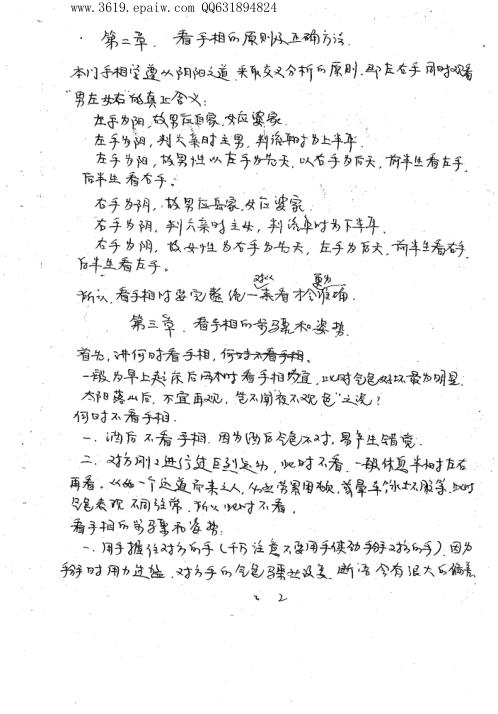 www.3619.epaiw.com QQ631894824
第二章. 看手相的原则及正确方法.
本门手相学遵从阴阳之道, 采取交叉分析的原则. 即左右手同时观看
"男左女右"的真正含义:
左手为阳, 故男应自家, 女应婆家.
左手为阳, 判六亲时主男, 判流年时为上半年.
左手为阳, 故男性以左手为先天, 以右手为后天, 前半生看左手,
后半生看右手.
右手为阴, 故男应岳家, 女应婆家.
右手为阴, 判六亲时主女, 判流年时为下半年.
右手为阴, 故女性为右手为先天, 左手为后天, 前半生看右手,
后半生看左手.
所以, 看手相时要完整统一来看才会准确.
第三章. 看手相的步骤和姿势.
首先, 讲何时看手相, 何时不看手相.
一般为早上起床后两小时看手相为宜, 此时气色好坏最为明显.
太阳落山后, 不宜再观, 岂不闻"夜不观色"之说?
何时不看手相.
一. 酒后不看手相. 因为酒后气色不对, 易产生错觉.
二. 对方刚刚进行过剧烈运动, 此时不看. 一般休息半小时左右
再看。从如一个远道而来之人, 必应劳累困顿, 或晕车等水土不服等, 此时
气色表现不同往常. 所以此时不看.
看手相的步骤和姿势:
一. 用手握住对方的手 (千万注意不要用手使劲掰对方的手). 因为
掰时用力过猛. 对方手的气色骤然改变. 断语会有很大的偏差.
2